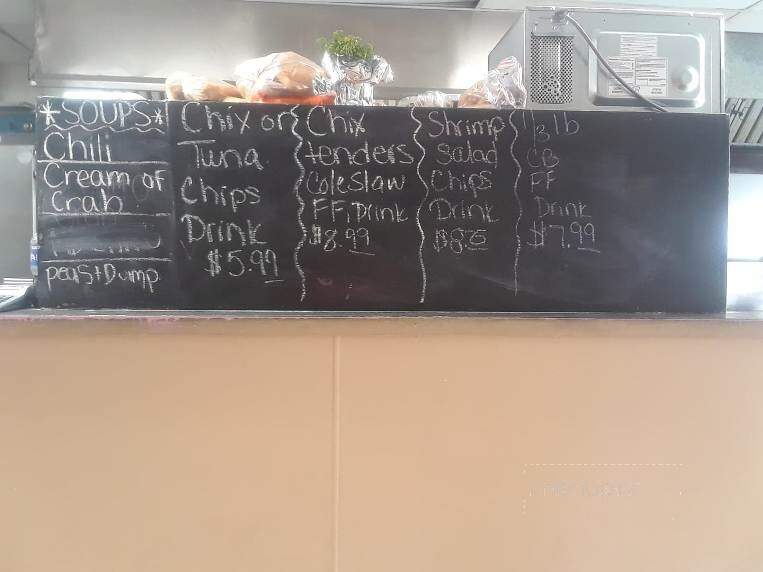 *SOUPS*
Chili
Cream of
Crab
peas+Dump
Chix or
Tuna
Chips
Drink
$5.99
Chix
tenders
Coleslaw
FF, Drink
$8.99
Shrimp
Salad
Chips
Drink
1/3 lb
CB
FF
Drink
$7.99